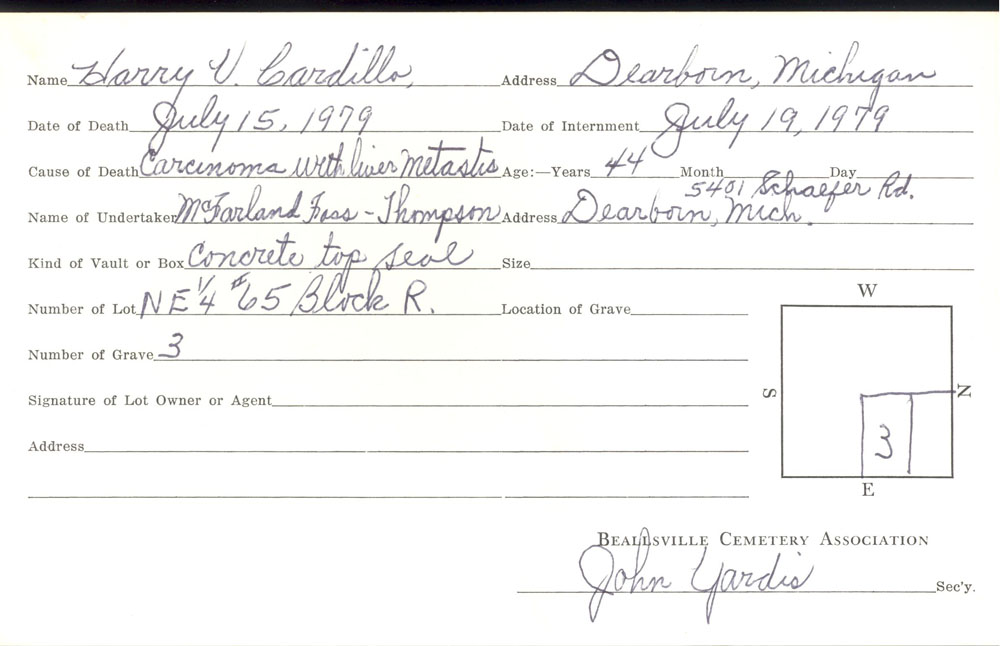 Name Harry V. Cardillo, Address Dearborn, Michigan
Date of Death July 15, 1979 Date of Internment July 19, 1979
Cause of Death Carcinoma with liver Metastis Age:—Years 44 Month Day
5401 Schaefer Rd.
Name of Undertaker McFarland Foss - Thompson Address Dearborn, Mich.
Kind of Vault or Box Concrete top seal Size
Number of Lot NE 1/4 #65 Block R. Location of Grave
W
Number of Grave 3
Signature of Lot Owner or Agent
S N
3
Address
E
BEALLSVILLE CEMETERY ASSOCIATION
John Yardis Sec'y.